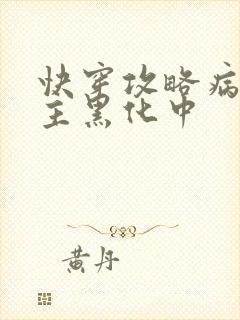 快穿攻略病
主黑化中
黄丹